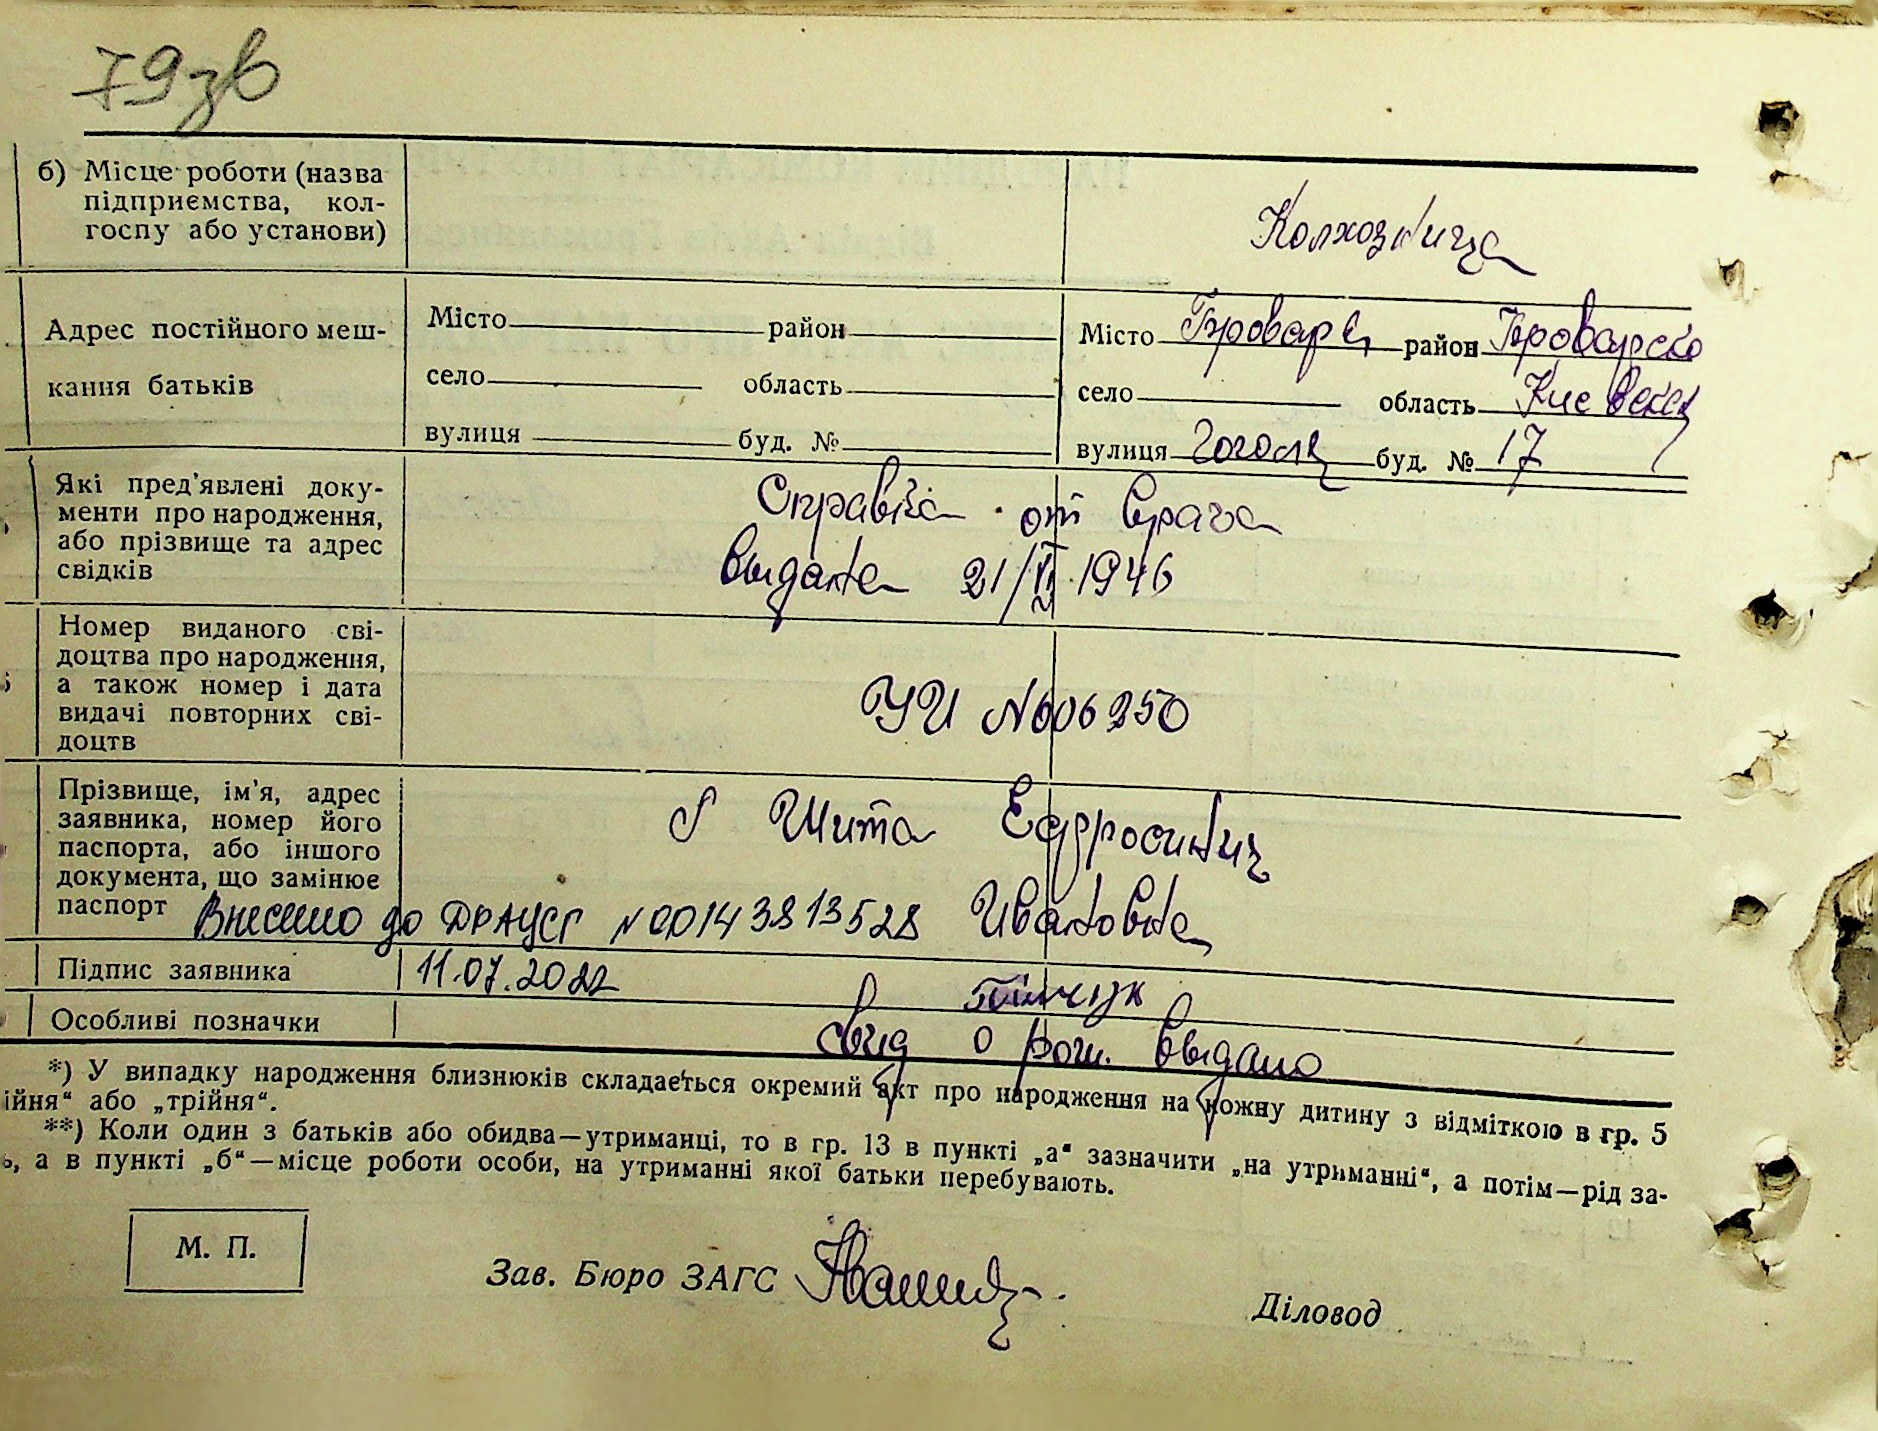 79зв
б) Місце роботи (назва
підприємства, кол-
госпу або установи)
Колхозница
Адрес постійного меш-
кання батьків
Місто район
село область
вулиця буд. №
Місто Бровары район Броварско
село область Киевской
вулиця Гоголя буд. № 17
Які пред'явлені доку-
менти про народження,
або прізвище та адрес
свідків
Справка от врача
выдана 21/ 1946
Номер виданого сві-
доцтва про народження,
а також номер і дата
видачі повторних сві-
доцтв
УИ N606250
Прізвище, ім'я, адрес
заявника, номер його
паспорта, або іншого
документа, що замінює
паспорт
Шита
Ивановна
Внесено до ДРАЦСГ N00143813528
Підпис заявника
11.07.2022
Особливі позначки
свид о рож. выдано
*) У випадку народження близнюків складається окремий акт про народження на кожну дитину з відміткою в гр. 5
ійня“ або „трійня“.
**) Коли один з батьків або обидва—утриманці, то в гр. 13 в пункті „а“ зазначити „на утриманні“, а потім—рід за-
ь, а в пункті „б“—місце роботи особи, на утриманні якої батьки перебувають.
М. П.
Зав. Бюро ЗАГС
Діловод